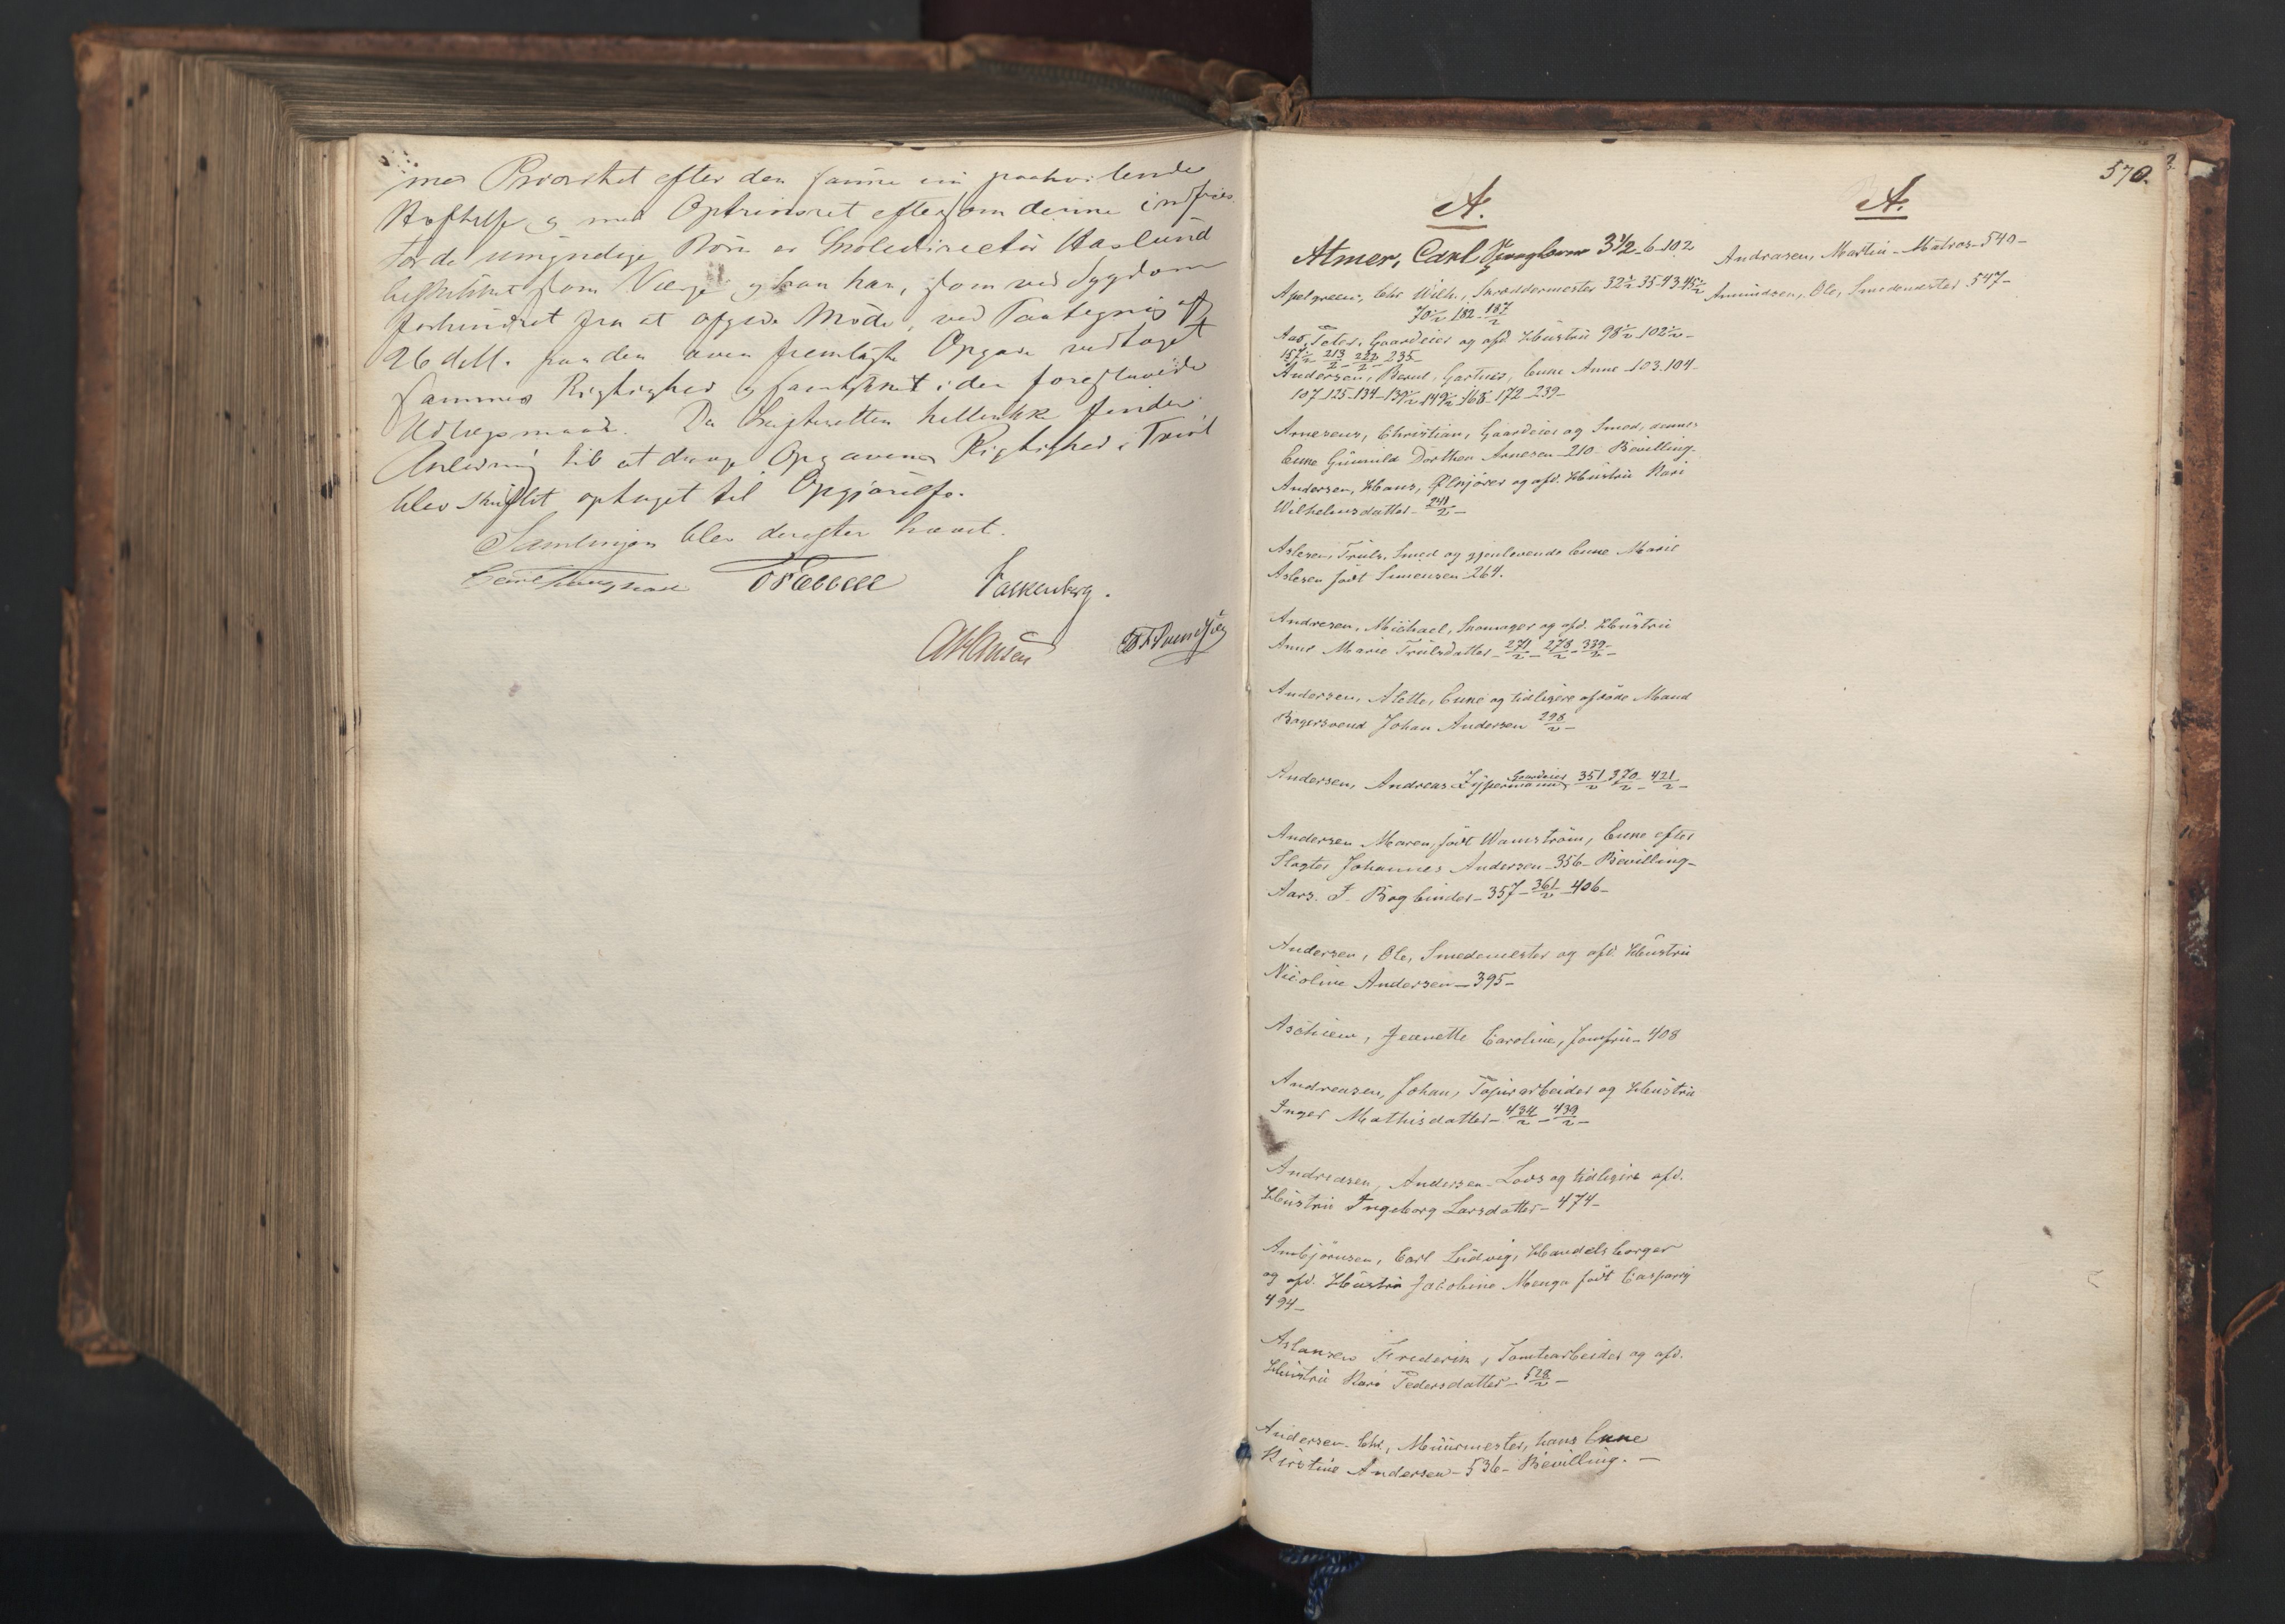 med efter den samme
og med eftersom denne
for de umyndige Børn er Skoledirectør Haslund
beskikket som Værge og har han, som ved Sygdom
forhindret fra at afgive Møde, ved Paategning af
26 dM. paa den oven fremlagte Opgave vedtaget
sammes Rigtighed og samtykket i den foreslaaede
Udlægsmaade. Da Skifteretten heller ikke finder
Anledning til at drage Opgavens Rigtighed i Tvivl
blev Skiftet optaget til Opgjørelse.
Samlingen blev derefter hævet.
Falkenberg.
570.
A.
Atmer, Carl 3 1/2 - 6 - 102
Apelgreen, Chr Wilh., Skræddermester 32 1/2 - 35 - 43 - 45 1/2
70 1/2 - 182 - 187/2
Aas, Peter, Gaardeier og afd Hustru 98 1/2 - 102 1/2 -
157 1/2 - 213/2 - 222/2 - 235 -
Andersen, Bernt, Gartner, Enke Anne - 103 - 104 -
107 - 125 - 134 - 139 1/2 - 149 1/2 - 168 - 172 - 239 -
Arnesens, Christian, Gaardeier og Smed, dennes
Enke Gunnild Dorthea Arnesen - 210 - Bevilling.
Andersen, Hans, og afd. Hustru Kari
Wilhelmsdatter - 241/2 -
Aslesen, Truls, Smed og gjenlevende Enke Marie
Aslesen født Simensen - 264.
Andresen, Michael, Skomager og afd. Hustru
Anne Marie Trulsdatter - 271/2 - 278/2 - 339/2 -
Andersen, Alette, Enke og tidligere afdøde Mand
Bagersvend Johan Andersen 298/2 -
Andersen, Andreas Gaardeier 351/2 370/2 - 421/2 -
Andersen Maren, født Wamström, Enke efter
Slagter Johannes Andersen - 356 - Bevilling -
Aars. J. Bogbinder - 357 - 361/2 - 406 -
Andersen, Ole, Smedemester og afd. Hustru
Nicoline Andersen - 395 -
Aschiem, Jeanette Caroline, Jomfru - 408
Andreasen, Johan, Papirarbeider og Hustru
Inger Mathisdatter - 434/2 - 439/2 -
Andreasen, Andersen - Lods og tidligere afd.
Hustru Ingeborg Larsdatter - 474 -
Ambjørnsen, Carl Ludvig, Handelsborger
og afd. Hustru Jacobine Menga født Caspary
494 -
Aslansen Frederik, Tomtearbeider og afd.
Hustru Kari Pedersdatter - 528/2 -
Andersen - Chr, Muurmester, hans Enke
Kirstine Andersen - 536 - Bevilling. -
A.
Andrasen, Martin - Matros - 540 -
Amundsen, Ole, Smedemester 547 -